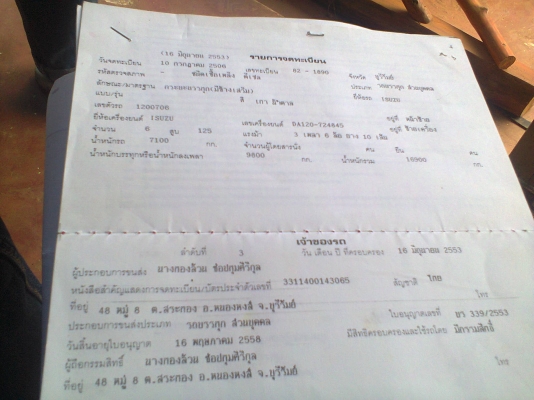 (16 มิถุนายน 2553) รายการจดทะเบียน
วันจดทะเบียน 10 กรกฎาคม 2506 เลขทะเบียน 82 - 1890 จังหวัด บุรีรัมย์
รหัสตรวจสภาพ - ชนิดเชื้อเพลิง ดีเซล ประเภท รถบรรทุก ส่วนบุคคล
ลักษณะ/มาตรฐาน ยี่ห้อรถ ISUZU
แบบ/รุ่น สี เทา
เลขตัวรถ 1200706 อยู่ที่
ยี่ห้อเครื่องยนต์ ISUZU เลขเครื่องยนต์ DA120-724845 อยู่ที่
จำนวน 6 สูบ 125 แรงม้า 3 เพลา 6 ล้อ ยาง 10 เส้น
น้ำหนักรถ 7100 กก. จำนวนผู้โดยสารนั่ง คน ยืน คน
น้ำหนักบรรทุกหรือน้ำหนักลงเพลา 9800 กก. น้ำหนักรวม 16900 กก.
เจ้าของรถ
ลำดับที่ 3 วัน เดือน ปี ที่ครอบครอง 16 มิถุนายน 2553
ผู้ประกอบการขนส่ง นางทองล้วน
หนังสือสำคัญแสดงการจดทะเบียน/บัตรประจำตัวเลขที่ 3311400143065 สัญชาติ ไทย
ที่อยู่ 48 หมู่ 8 ต.สระทอง อ.หนองหงส์ จ.บุรีรัมย์ โทร
ประกอบการขนส่งประเภท รถบรรทุก ส่วนบุคคล ใบอนุญาตเลขที่ บร 339/2553
วันสิ้นอายุใบอนุญาต 16 พฤษภาคม 2558 มีสิทธิครอบครองและใช้รถโดย มีกรรมสิทธิ์
ผู้ถือกรรมสิทธิ์ นางทองล้วน
ที่อยู่ 48 หมู่ 8 ต.สระทอง อ.หนองหงส์ จ.บุรีรัมย์ โทร